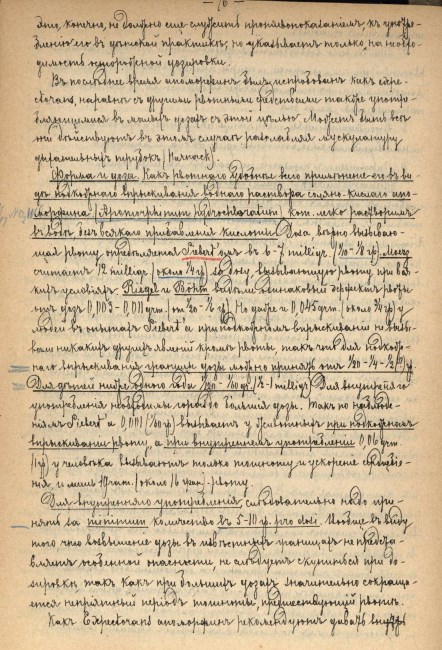 — 76 —
это, конечно, не должно еще служить противопоказаніемъ къ употреб-
ленію его въ дѣтской практикѣ, но указываетъ только на необхо-
димость осторожной дозировки.
Въ послѣднее время апоморфинъ былъ испробованъ какъ expe-
ctorans, наравнѣ съ другими рвотными средствами также употреб-
ляющимися въ малыхъ дозахъ съ этой цѣлью. Можетъ быть всѣ
они дѣйствуютъ въ этомъ случаѣ разслабляя мускулатуру
дыхательныхъ трубокъ
Форма и доза. Какъ рвотное удобнѣе всего примѣненіе его въ ви-
дѣ подкожнаго впрыскиванія воднаго раствора соляно-кислаго апо-
морфина /Apomorphinum hydrochloratum/, кот. легко растворимъ
въ водѣ безъ всякаго прибавленія кислоты. Доза вѣрно вызываю-
щая рвоту опредѣляется Siebert'омъ въ 6-7 миллигр. (1/10-1/8 гр). Moerz
считаетъ 12 миллигр. /около 1/4 гр/ за дозу вызывающую рвоту при вся-
кихъ условіяхъ. Riegel и Böhm видѣли одинаковый эффектъ
отъ дозъ 0,003-0,011 grm. - от 1/20 - 1/6 гр) Но даже и 0,045 grm. /около 3/4 гр/ у
людей въ опытахъ Siebert'а при подкожномъ впрыскиваніи не вызы-
вали никакихъ другихъ явленій кромѣ рвоты, такъ что для подкож-
наго впрыскиванія границы дозы можно принять отъ 1/20 - 1/4 - 1/2 гр.
Для дѣтей ниже одного года 1/120 - 1/60 gr. /1/2 - 1 миллигр./ Для внутренняго
употребленія необходимы гораздо большія дозы. Такъ по наблюде-
ніямъ Siebert'а 0,001 /1/60 гр/ вызываетъ у при подкожномъ
впрыскиваніи рвоту, а при внутреннемъ употребленіи 0,06 grm.
/1 гр/ у человѣка вызываютъ только тошноту и ускореніе
и лишь 1 grm. /около 16 гран./ рвоту.
Для внутренняго употребленія, слѣдовательно надо при-
нять за minimum количество въ 5-10 гр. pro dosi. Вообще въ виду
того что возвышеніе дозы въ извѣстныхъ границахъ не предста-
вляетъ особенной опасности не слѣдуетъ скупиться при до-
зировкѣ, такъ какъ при большихъ дозахъ значительно сокраща-
ется непріятный періодъ тошноты, предшествующій рвотѣ.
Какъ Expectorans апоморфинъ рекомендуютъ давать внутрь